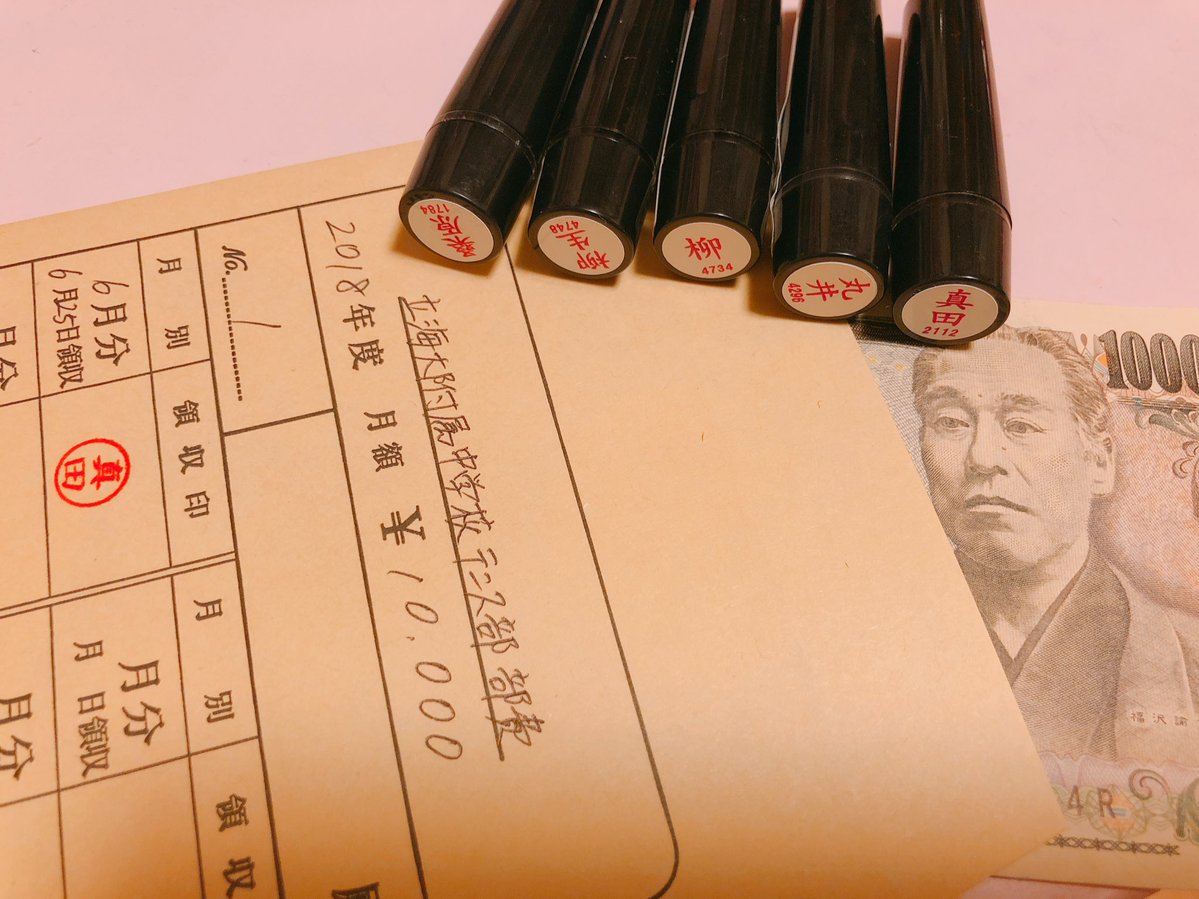 桑原
1784
柳生
4748
柳
4734
丸井
4296
真田
2112
立海大附属中学校 テニス部 部費
2018年度 月額 ¥10,000
No. 1
月別 領収印 月別 領収
6月分
6月25日領収
真田
月分
月 日領収
月分
月分
1000
福沢諭
4R